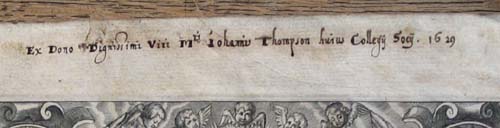 Ex Dono Dignissimi Viri Mri Johanis Thompson huius Collegij Socij. 1629